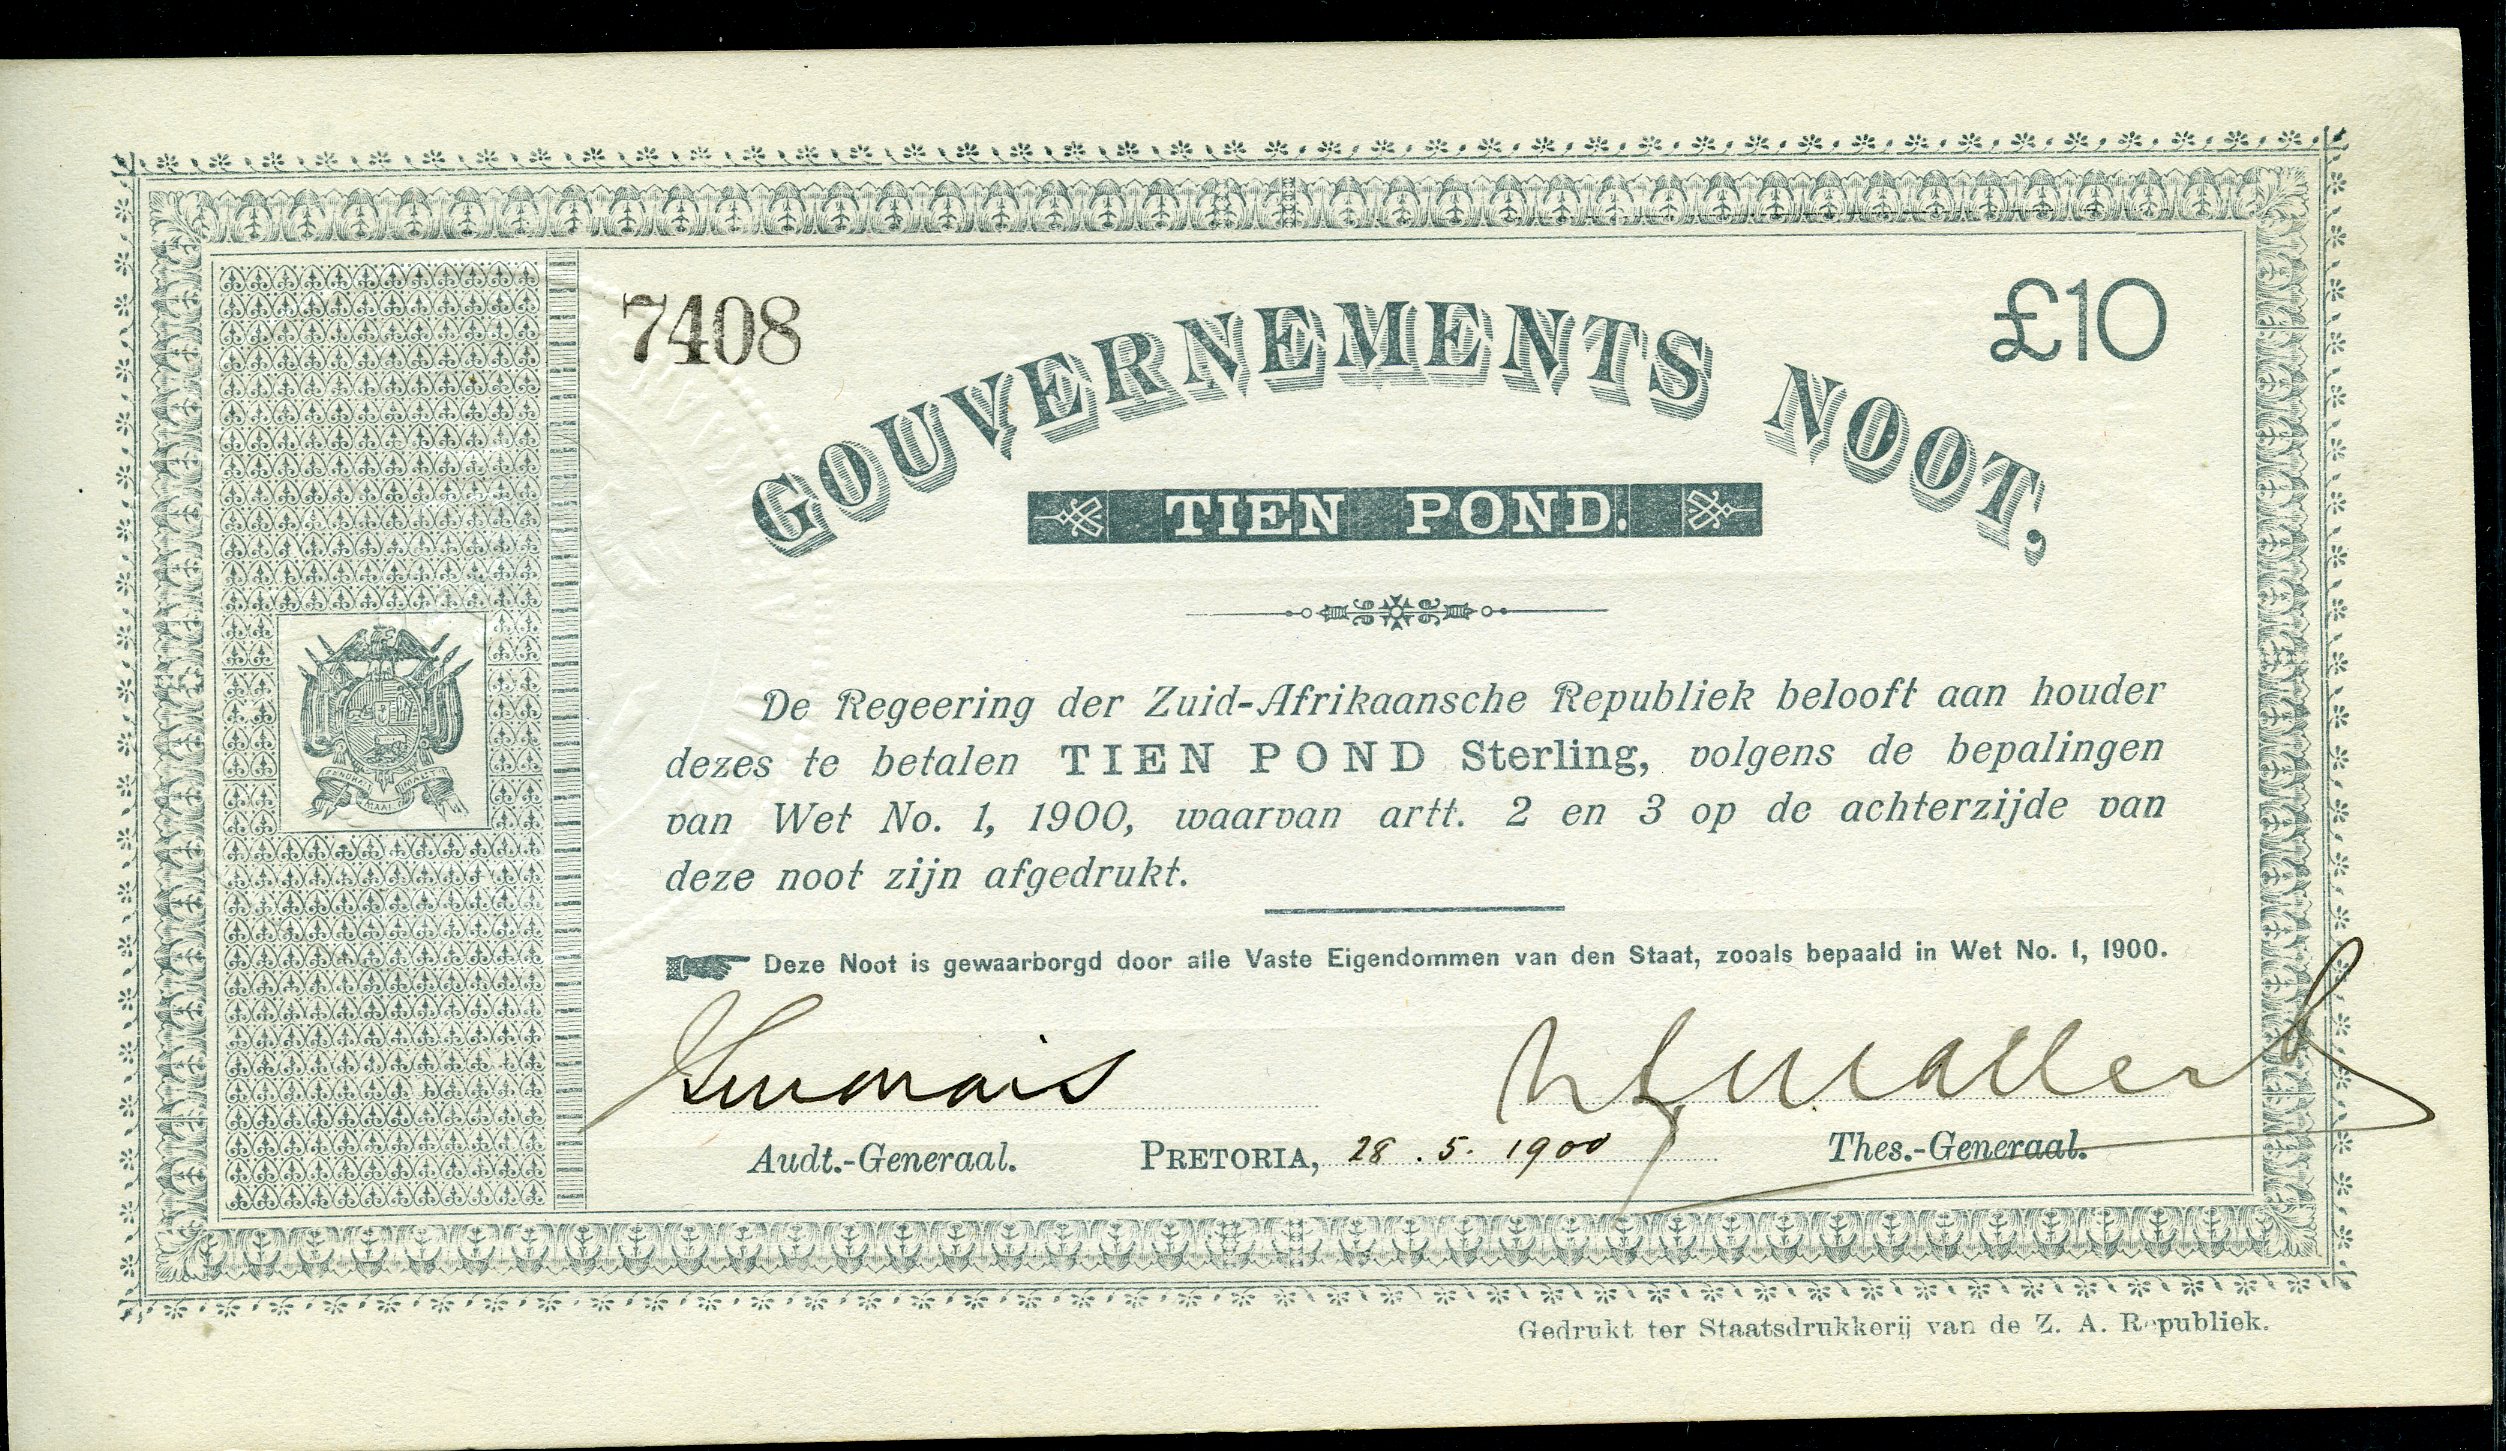 7408
£10
GOUVERNEMENTS NOOT,
TIEN POND.
De Regeering der Zuid-Afrikaansche Republiek belooft aan houder
dezes te betalen TIEN POND Sterling, volgens de bepalingen
van Wet No. 1, 1900, waarvan artt. 2 en 3 op de achterzijde van
deze noot zijn afgedrukt.
Deze Noot is gewaarborgd door alle Vaste Eigendommen van den Staat, zooals bepaald in Wet No. 1, 1900.
Audt.-Generaal. PRETORIA, 28.5.1900 Thes.-Generaal.
Gedrukt ter Staatsdrukkerij van de Z. A. Republiek.